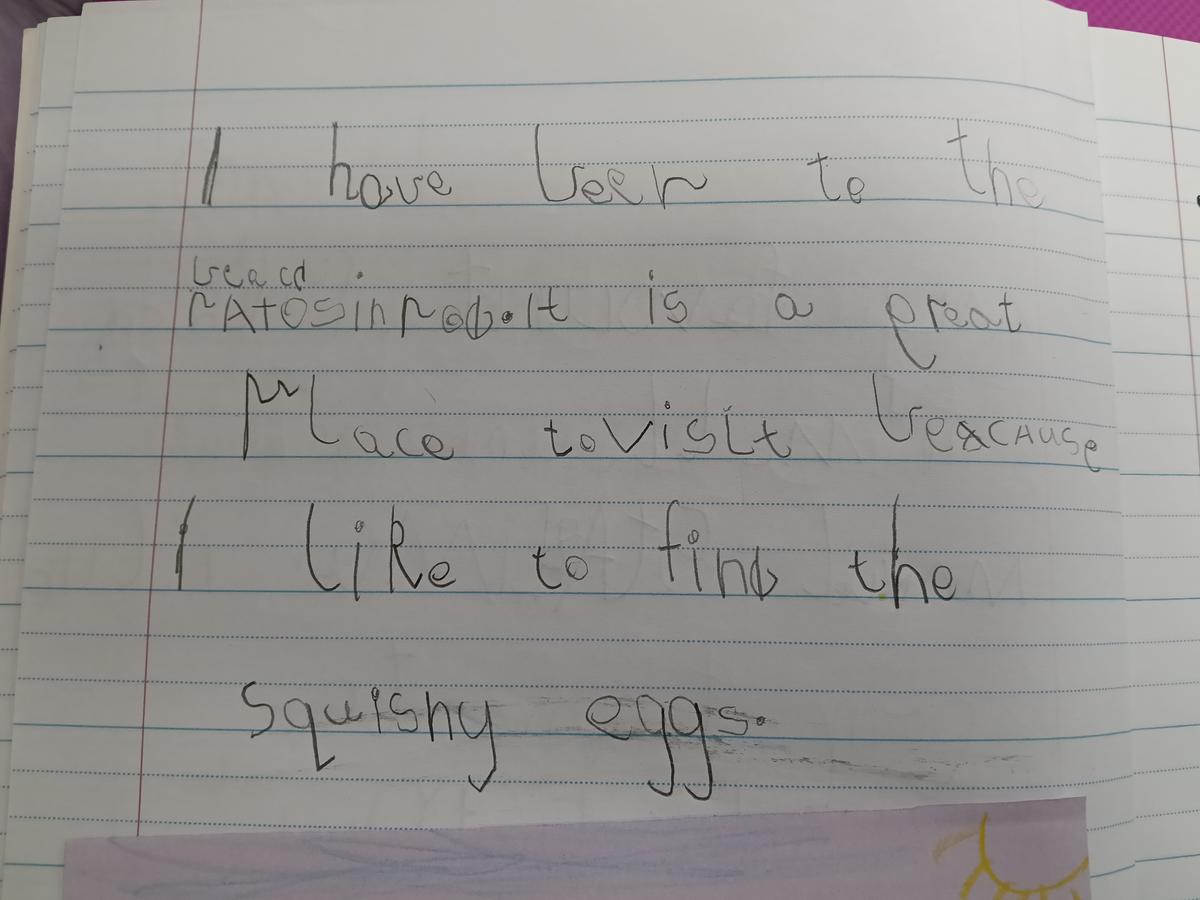 I have been to the
beach
in a great
place to visit because
I like to find the
squishy eggs.